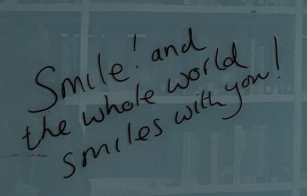 Smile! and
the whole world
smiles with you!